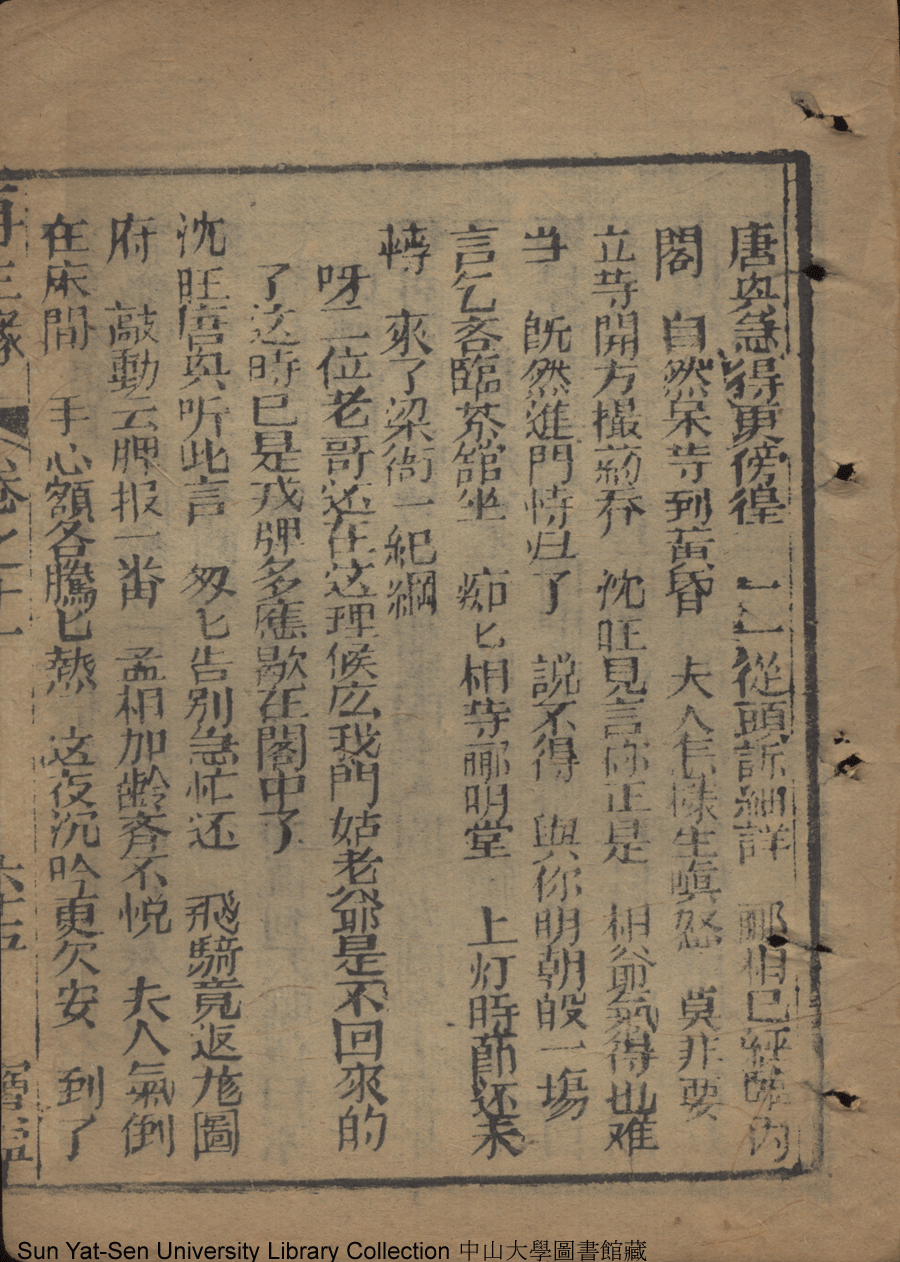 唐兴急得更傍徨　一一從頭訴細詳　郦相已經臨内
閣　自然呆等到黄昏　夫人怎樣生嗔怒　莫非要
立等開方撮药吞　沈旺見言你正是　相爺氣得也难
当　既然進門恃归了　説不得　與你明朝的一塲
言乞各臨茶舘坐　痴匕相等郦明堂　上灯時節还未
轉　來了梁衙一紀綱
呀二位老哥还在这理候庅我門姑老爺是不回來的
了这時已是戎牌多應歇在閣中了
沈旺唐兴听此言　匆匕告别急忙还　飛騎竟返龙圖
府　敲動云牌报一番　孟相加齡斉不悦　夫人氣倒
在床間　手心額各騰匕熱　这夜沉吟更欠安　到了
再生緣　卷之十一　六十五　寳益
Sun Yat-Sen University Library Collection 中山大學圖書館藏